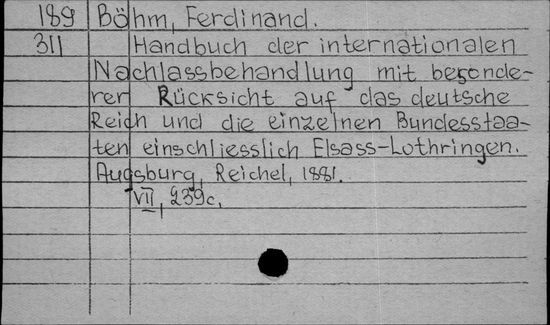 189 Böhm, Ferdinand.
311 Handbuch der internationalen
Nachlassbehandlung mit besonde-
rer Rücksicht auf das deutsche
Reich und die einzelnen Bundesstaa-
ten einschliesslich Elsass-Lothringen.
Augsburg, Reichel, 1881.
VII, 239c.